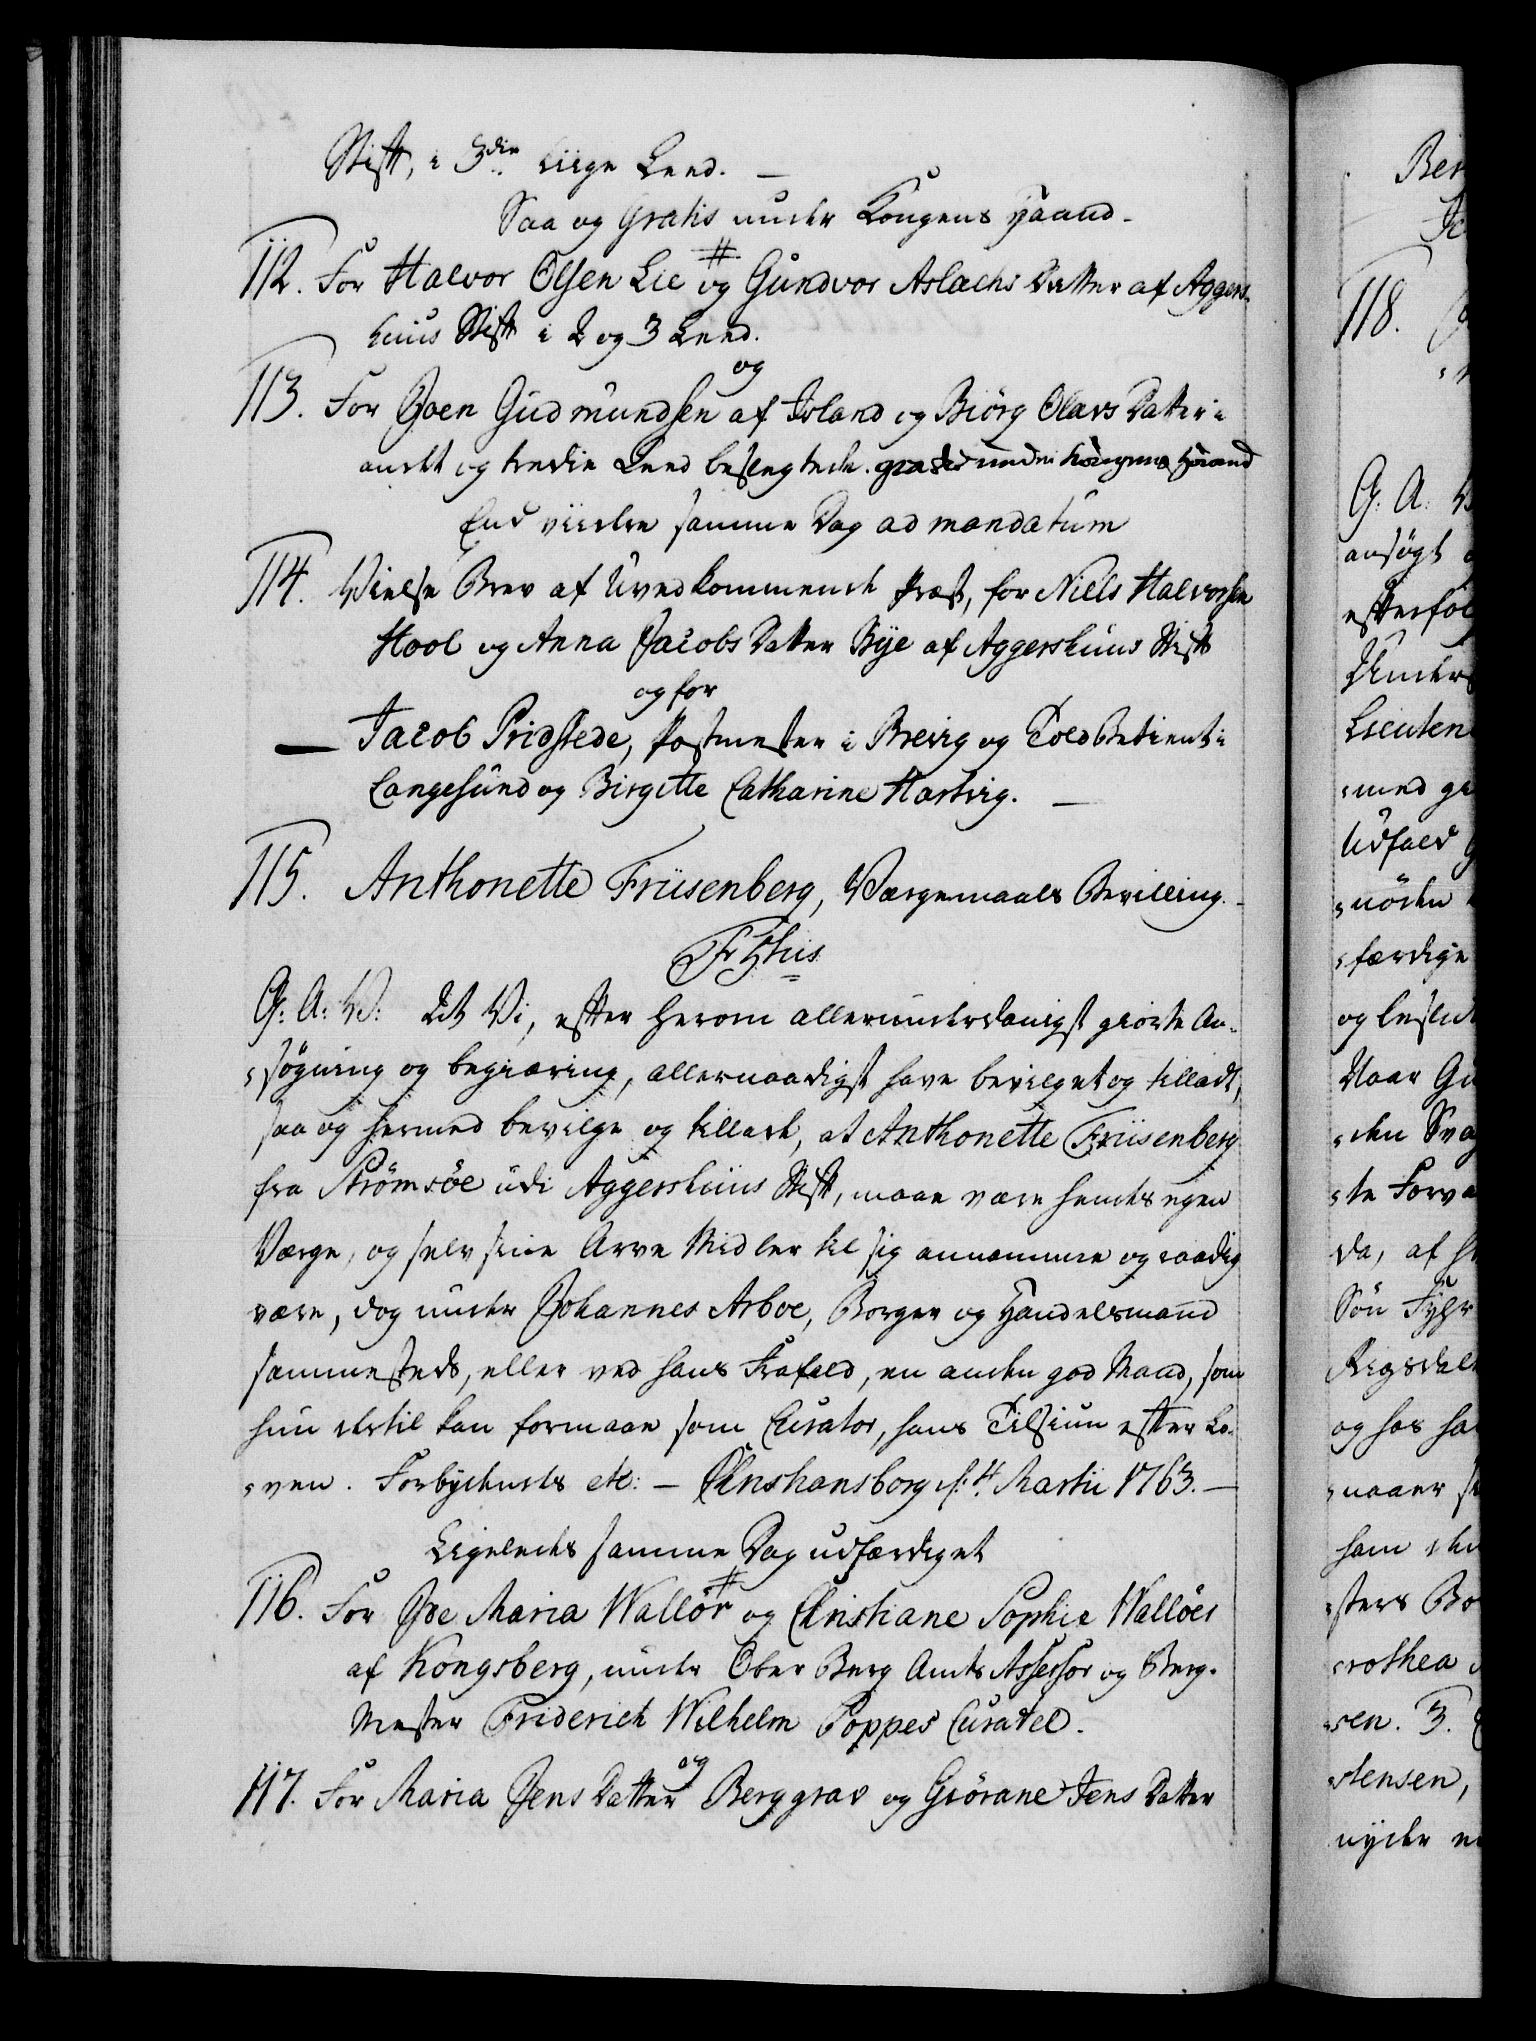 Stift, i 3die Liige Leed. —
Saa og Gratis under Kongens Haand.
112. For Halvor Olsen Lie og Gundvor Aslachs Datter af Aggers-
huus Stift i 2 og 3 Leed.
og
113. For Joen Gudmundsen af Island og Biörg Olavs Datter i
andet og tredie Leed beslegtede. gratis under Kongens Haand
End viidere samme Dag ad mandatum
114. Vielse Brev af Uvedkommende Præst, for Niels Halvorsen
Hool og Anna Jacobs Datter Bye af Aggershuus Stift
og for
— Jacob Pridstede, Postmester i Brevig og Told Betient i
Langesund og Birgitte Catharine Hartvig. —
115. Anthonette Friisenberg, Værgemaals Bevilling. -
F 5tus
G: A: V: At Vi, efter herom allerunderdanigst giorte An-
søgning og begiæring, allernaadigst have bevilget og tilladt,
saa og hermed bevilge og tillade, at Anthonette Friisenberg
fra Strömsöe udi Aggershuus Stift, maae være hendes egen
Værge, og selv sine Arve Midler til sig annamme og raadig
være, dog under Johannes Arboe, Borger og Handelsmand
sammesteds, eller ved hans Frafald, en anden god Mand, som
hun dertil kan formaae som Curator, hans Tilsiun efter Lo-
ven. Forbydendes etc: — Christiansborg d: 4. Martii 1763. —
Ligeledes samme Dag udfærdiget
116. For Ide Maria Wallör og Christiane Sophie Wallöer
af Kongsberg, under Ober Berg Amts Assessor og Berg-
Mester Friderich Wilhelm Poppes Curatel.
og
117. For Maria Jens Datter Berggrav og Giörane Jens Datter
118.
G: A: V
ansøgt
efterføl
Lieuten
med
Udfald
nöden
færdige
og beslut
Vaar
den
te Forva
da, af
Sön
Rigsdal
og hos
naaer
ham
sters Bo
rothea
sen. 3.
stensen,
nyder